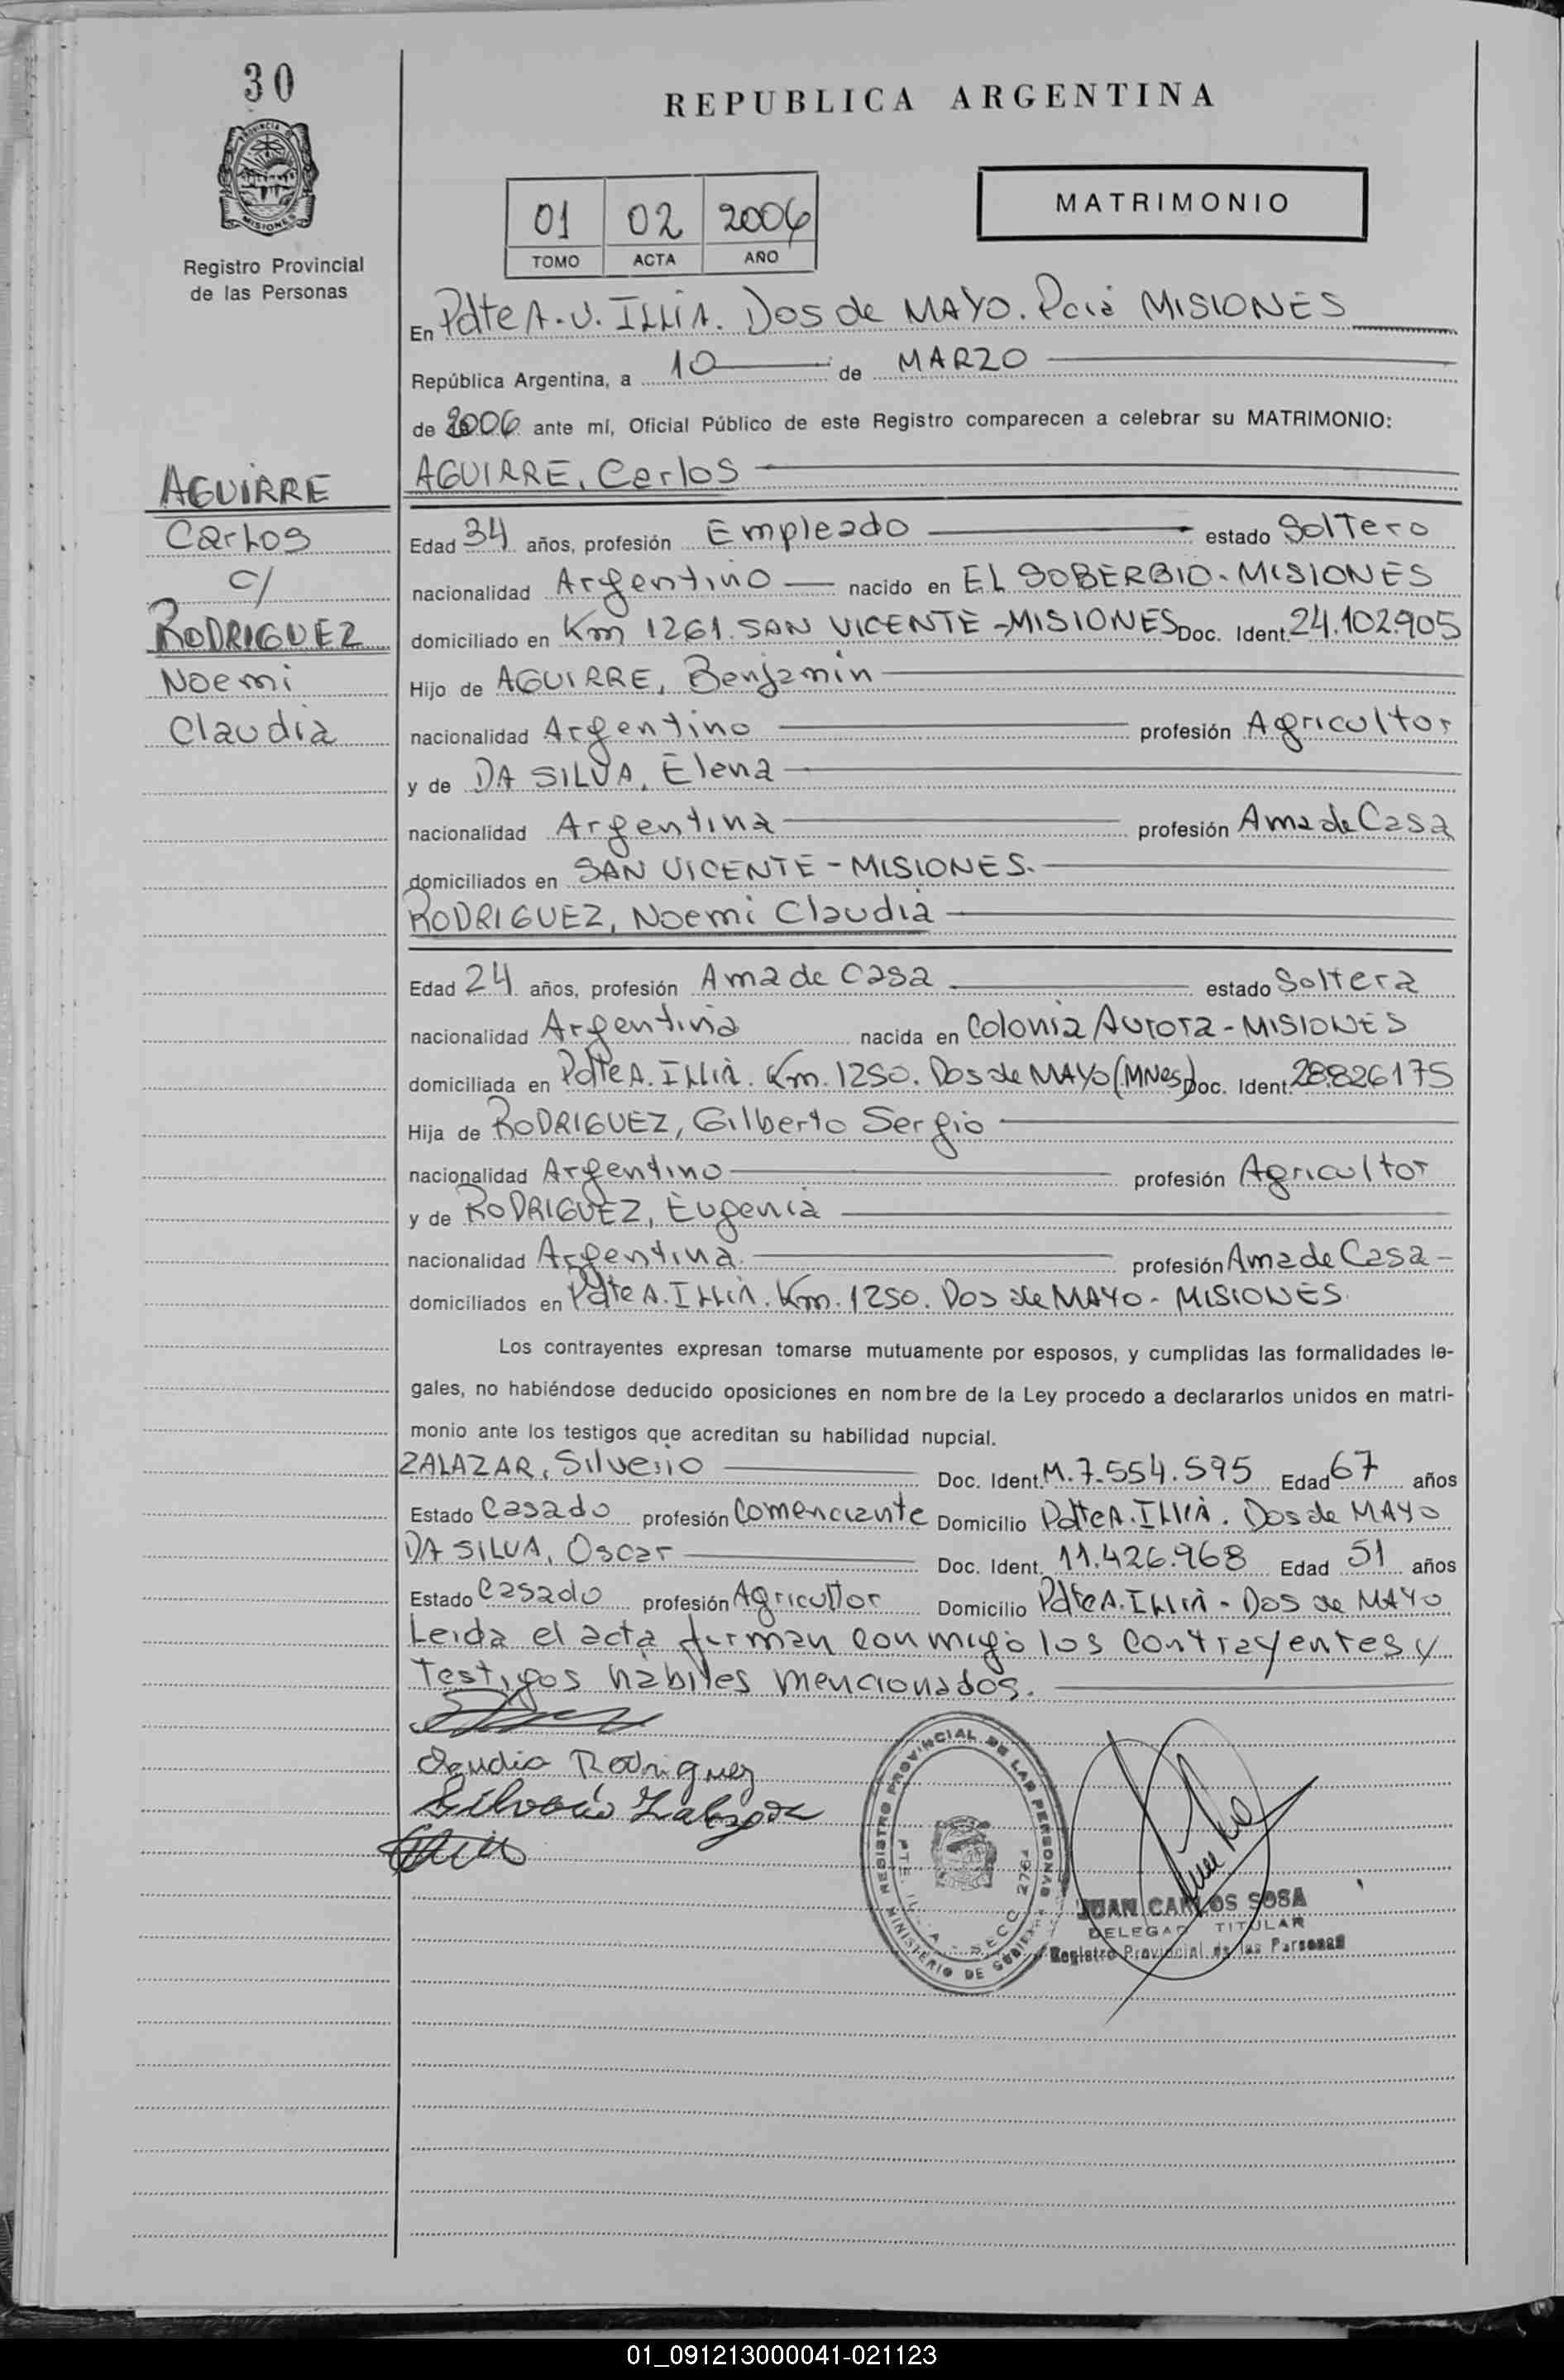 30
PROVINCIA DE
MISIONES
Registro Provincial
de las Personas
REPUBLICA ARGENTINA
01 02 2006
TOMO ACTA AÑO
MATRIMONIO
En Pdte A.U. ILLIA. Dos de MAYO. Pcia MISIONES
República Argentina, a 10 de MARZO
de 2006 ante mí, Oficial Público de este Registro comparecen a celebrar su MATRIMONIO:
AGUIRRE, Carlos
AGUIRRE
Carlos
c/
RODRIGUEZ
Noemi
Claudia
Edad 34 años, profesión Empleado estado Soltero
nacionalidad Argentino nacido en EL SOBERBIO - MISIONES
domiciliado en Km 1261. SAN VICENTE - MISIONES Doc. Ident. 24.102.905
Hijo de AGUIRRE, Benjamin
nacionalidad Argentino profesión Agricultor
y de DA SILVA, Elena
nacionalidad Argentina profesión Ama de Casa
domiciliados en SAN VICENTE - MISIONES.
RODRIGUEZ, Noemi Claudia
Edad 24 años, profesión Ama de casa estado Soltera
nacionalidad Argentina nacida en Colonia Aurora - MISIONES
domiciliada en Pdte A. Illia. Km. 1250. Dos de MAYO (MNes) Doc. Ident. 28.826175
Hija de RODRIGUEZ, Gilberto Sergio
nacionalidad Argentino profesión Agricultor
y de RODRIGUEZ, Eugenia
nacionalidad Argentina. profesión Ama de Casa -
domiciliados en Pdte A. Illia. Km. 1250. Dos de MAYO - MISIONES.
Los contrayentes expresan tomarse mutuamente por esposos, y cumplidas las formalidades le-
gales, no habiéndose deducido oposiciones en nombre de la Ley procedo a declararlos unidos en matri-
monio ante los testigos que acreditan su habilidad nupcial.
ZALAZAR, Silverio Doc. Ident. M. 7.554.595 Edad 67 años
Estado Casado profesión Comerciante Domicilio Pdte A. Illia. Dos de MAYO
DA SILVA, Oscar Doc. Ident. 11.426.968 Edad 51 años
Estado Casado profesión Agricultor Domicilio Pdte A. Illia - Dos de MAYO
Leida el acta firman conmigo los contrayentes y
testigos habiles mencionados.
Claudia Rodriguez
Silverio Zalazar
REGISTRO PROVINCIAL DE LAS PERSONAS
MINISTERIO DE
PTE. SECC 2764
JUAN CARLOS SOSA
DELEGADO TITULAR
Registro Provincial de las Personas
01_091213000041-021123